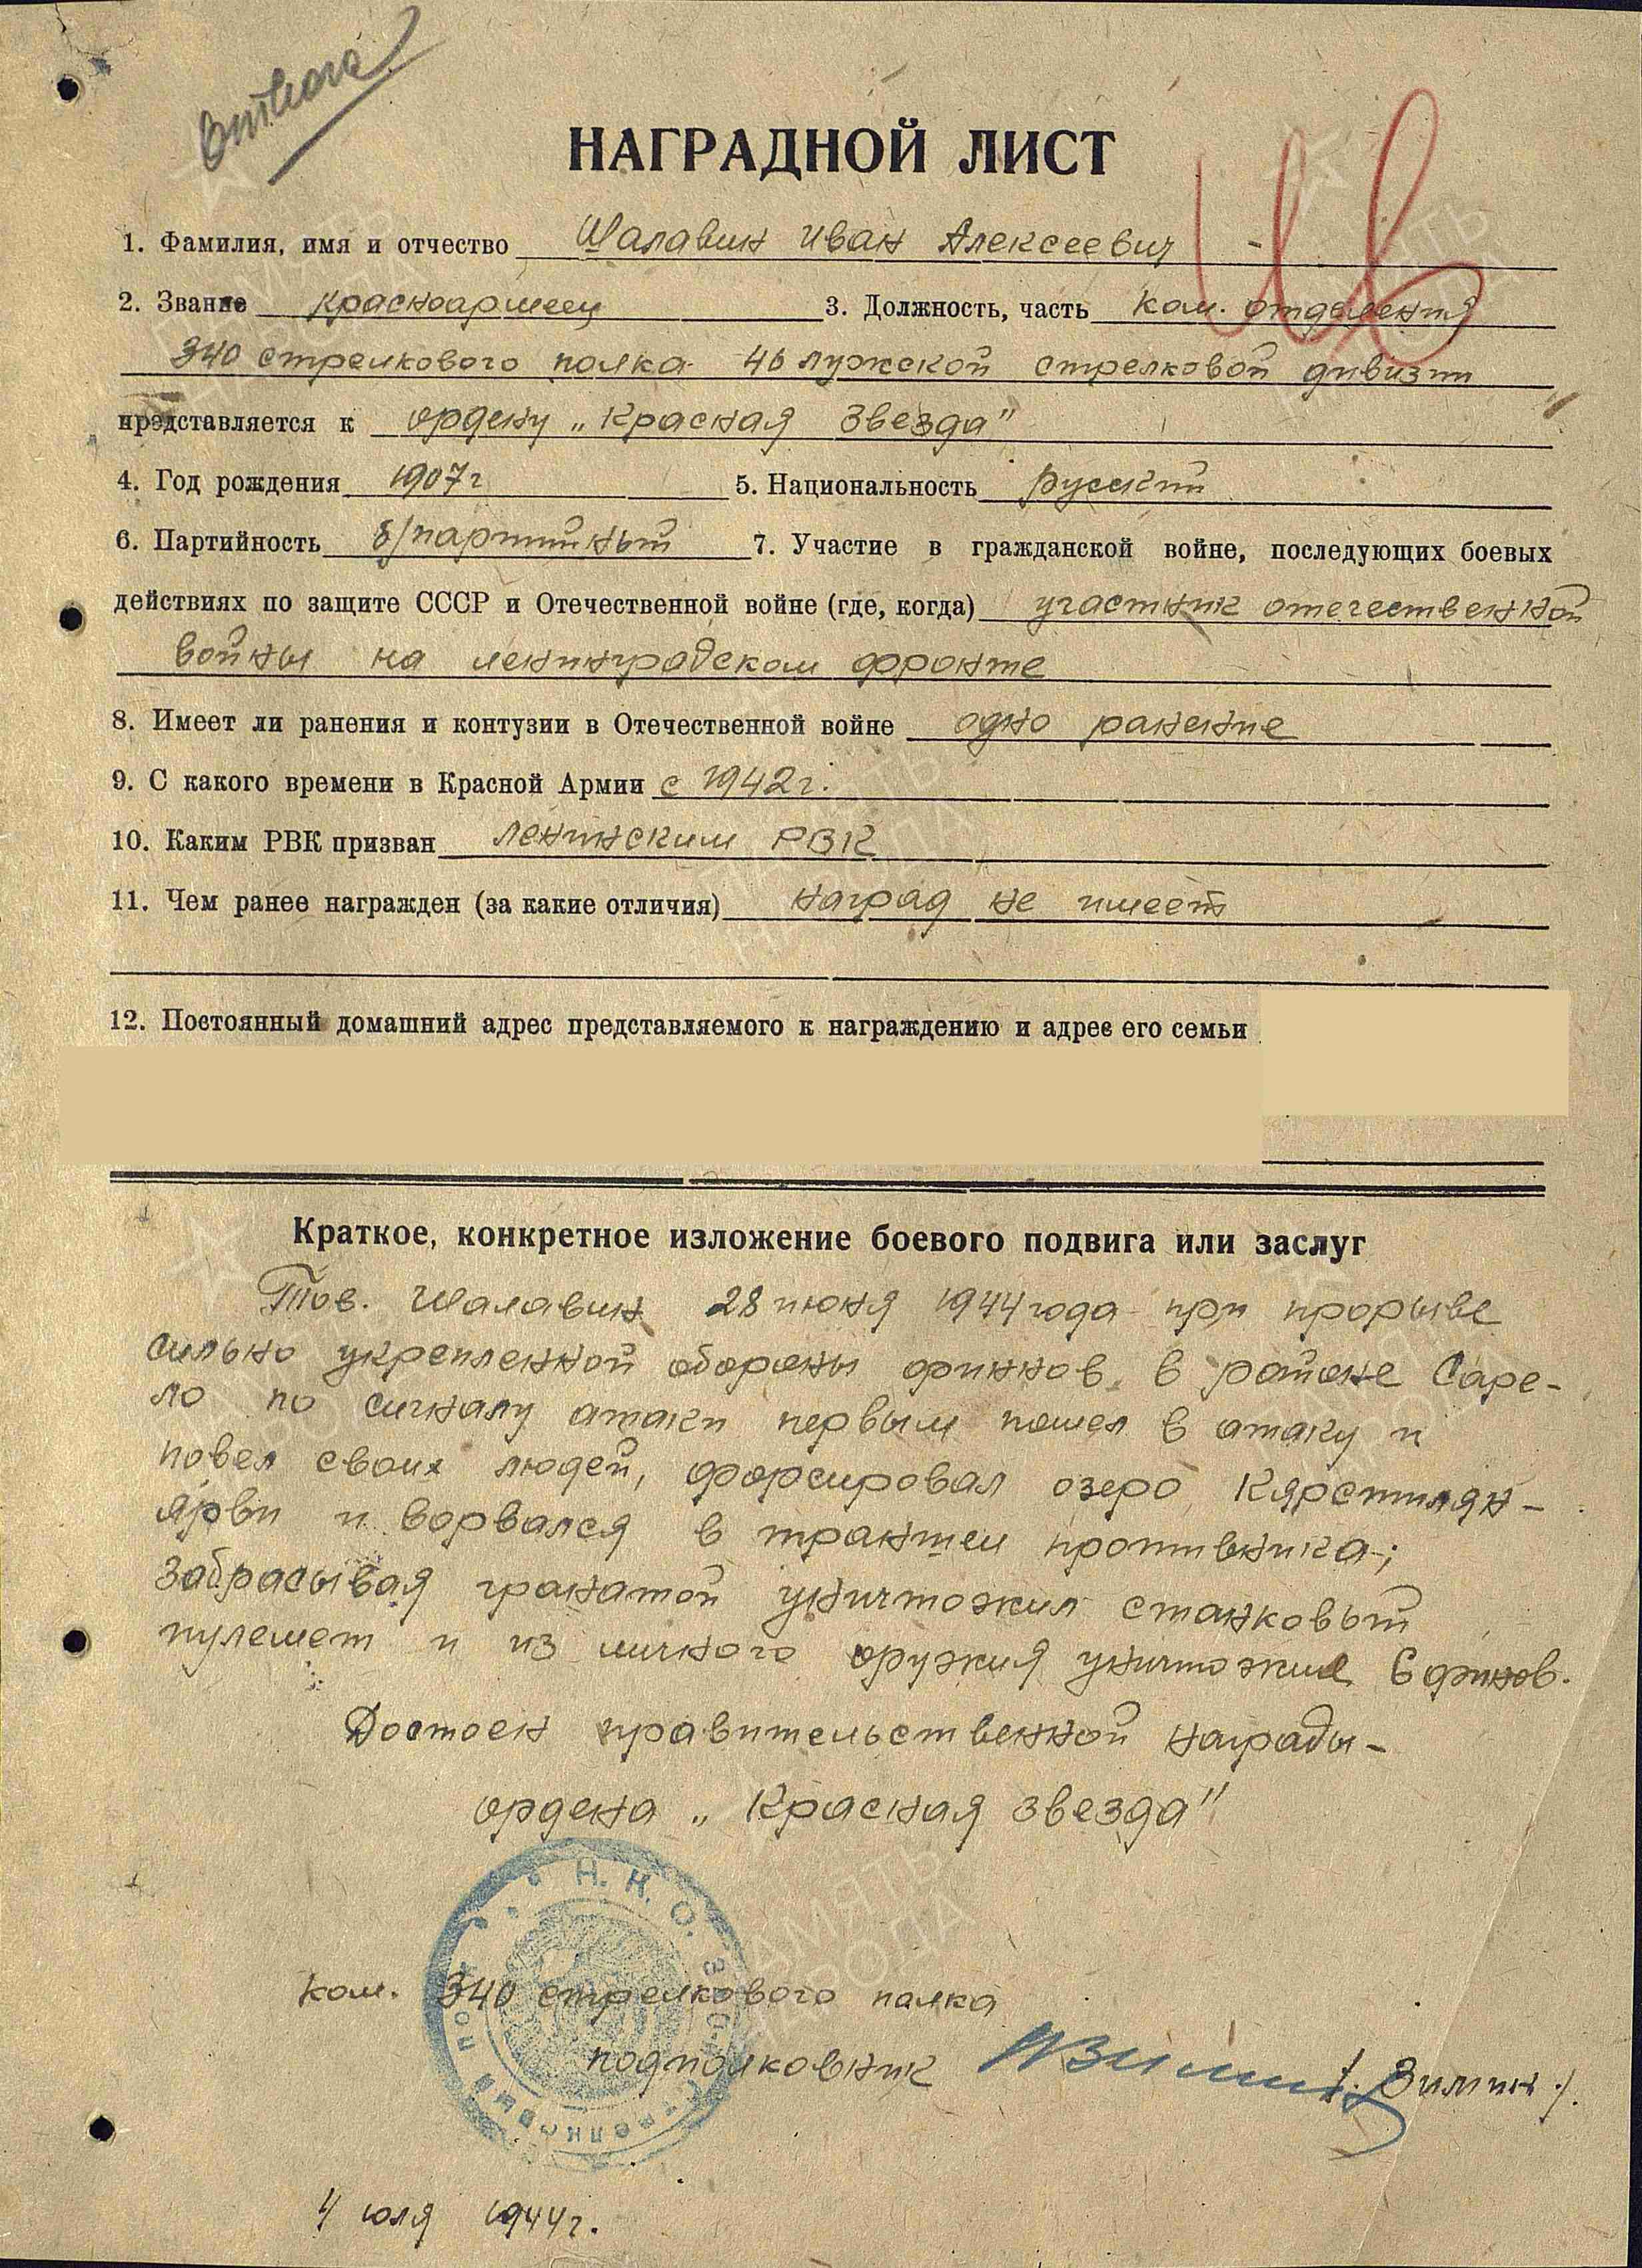 НАГРАДНОЙ ЛИСТ
1. Фамилия, имя и отчество Шалавин Иван Алексеевич -
2. Звание красноармеец 3. Должность, часть ком. отделения
340 стрелкового полка 46 лужской стрелковой дивизии
представляется к ордену „Красная Звезда"
4. Год рождения 1907г 5. Национальность русский
6. Партийность б/партийный 7. Участие в гражданской войне, последующих боевых
действиях по защите СССР и Отечественной войне (где, когда) участник отечественной
войны на ленинградском фронте
8. Имеет ли ранения и контузии в Отечественной войне одно ранение
9. С какого времени в Красной Армии с 1942г.
10. Каким РВК призван Ленинским РВК
11. Чем ранее награжден (за какие отличия) наград не имеет
12. Постоянный домашний адрес представляемого к награждению и адрес его семьи
Краткое, конкретное изложение боевого подвига или заслуг
Тов. Шалавин 28 июня 1944 года при прорыве
сильно укрепленной обороны финнов в районе Саре-
ло по сигналу атаки первым пошел в атаку и
повел своих людей, форсировал озеро Кярстилян-
ярви и ворвался в траншеи противника;
забрасывая гранатой уничтожил станковый
пулемет и из личного оружия уничтожил 6 финов.
Достоен правительственной награды-
ордена „Красная звезда"
Н. К. О.
Стрелковый полк
ком. 340 стрелкового полка
подполковник /. Зимин ./.
4 юля 1944г.
ПАМЯТЬ
НАРОДА